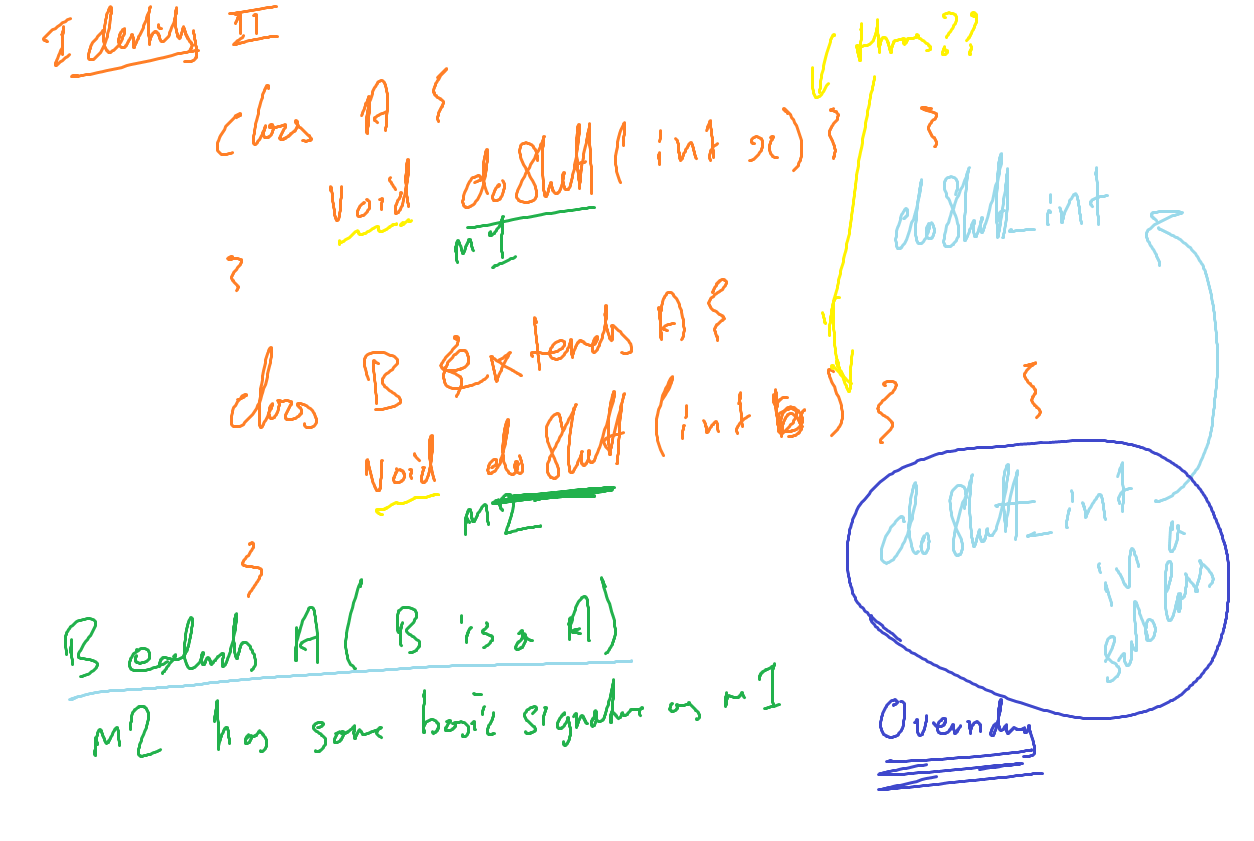 Identity II
throws??
class A {
void doStuff ( int x ) { }
m1
doStuff_int
}
class B extends A {
void doStuff ( int b ) { }
m2
doStuff_int
in a
subclass
}
B extends A ( B is a A )
m2 has same basic signature as m1
Overriding